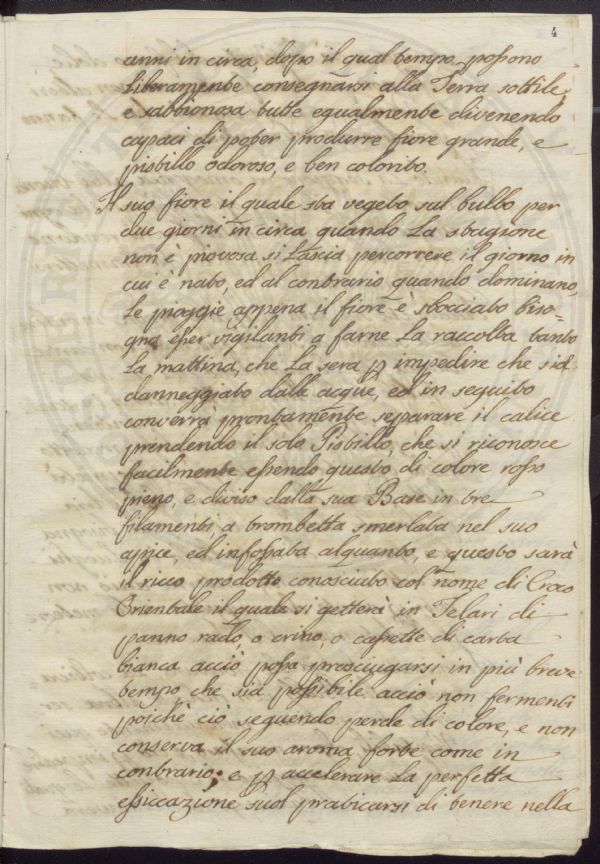 4
anni in circa, dopo il qual tempo possono
liberamente consegnarsi alla Terra sottile,
e sabbionosa tutte egualmente divenendo
capaci di poter produrre fiore grande, e
pistillo odoroso, e ben colorito.
Il suo fiore il quale sta vegeto sul bulbo per
due giorni in circa quando la stagione
non è piovosa si lascia percorrere il giorno in
cui è nato, ed al contrario quando dominano
le pioggie appena il fiore è sbocciato biso=
gna esser vigilanti a farne la raccolta tanto
la mattina, che la sera p impedire che sia
danneggiato dalle acque, ed in seguito
converrà prontamente separare il calice
prendendo il solo Pistillo, che si riconosce
facilmente essendo questo di colore rosso
pieno, e diviso dalla sua Base in tre
filamenti a trombetta smerlata nel suo
apice, ed infossata alquanto, e questo sarà
il ricco prodotto conosciuto col nome di Croco
Orientale il quale si getterà in Telari di
panno rado, o crino, o cassette di carta
bianca acciò possa prosciugarsi in più breve
tempo che sia possibile acciò non fermenti
poichè ciò seguendo perde di colore, e non
conserva il suo aroma forte come in
contrario; e p accelerare la perfetta
essiccazione suol praticarsi di tenere nella